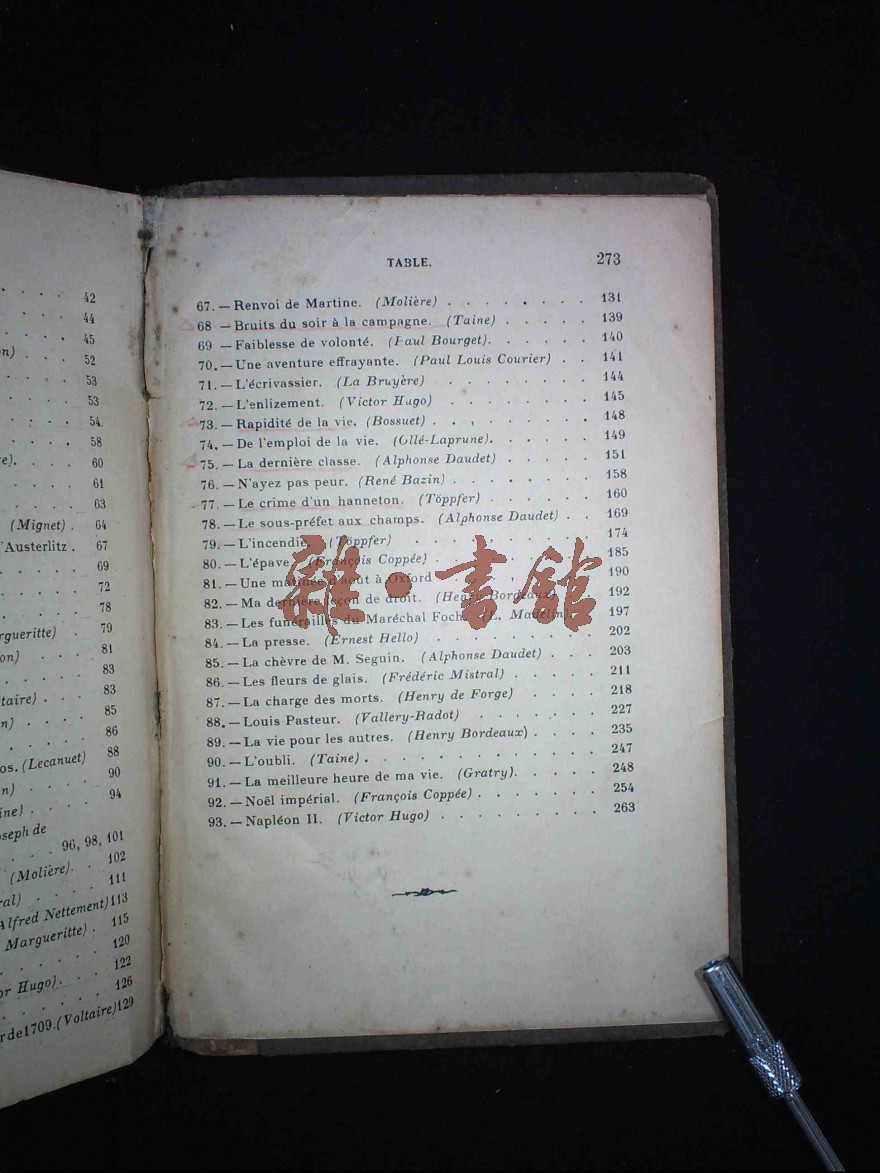 42
44
45
n) . . . 52
53
53
54
58
e). . . . 60
61
63
(Mignet) . 64
'Austerlitz . 67
69
72
78
rgueritte) . 79
on) 81
83
taire) . . . 83
n) . . . . 85
86
os. (Lecanuet) 88
n) . . . . 90
ine) . . . . 94
oseph de
. . . . 96, 98, 101
(Molière). . 102
ral) . . . . 111
Alfred Nettement) 113
Margueritte) . 115
120
or Hugo). . . 122
126
r de 1709. (Voltaire) 129
TABLE. 273
67. — Renvoi de Martine. (Molière) . . . . . . . . 131
68 — Bruits du soir à la campagne. (Taine) . . . . . 139
69 — Faiblesse de volonté. (Paul Bourget). . . . . . 140
70. — Une aventure effrayante. (Paul Louis Courier) . . 141
71. — L'écrivassier. (La Bruyère) . . . . . . . 144
72. — L'enlizement. (Victor Hugo) . . . . . . . 145
73. — Rapidité de la vie. (Bossuet) . . . . . . . . 148
74. — De l'emploi de la vie. (Ollé-Laprune). . . . . . 149
75. — La dernière classe. (Alphonse Daudet) . . . . . 151
76. — N'ayez pas peur. (René Bazin) . . . . . . . 158
77. — Le crime d'un hanneton. (Töppfer) . . . . . . 160
78. — Le sous-préfet aux champs. (Alphonse Daudet) . . 169
79. — L'incendie. (Töppfer) . . . . . . . . 174
80. — L'épave. (François Coppée) . . . . . . . . 185
81. — Une matinée d'août à Oxford . . . . . . . 190
82. — Ma dernière leçon de droit. (Henry Bordeaux) . . 192
83. — Les funérailles du Maréchal Foch. (L. Madelin). . 197
84. — La presse. (Ernest Hello) . . . . . . . . 202
85. — La chèvre de M. Seguin. (Alphonse Daudet) . . . 203
86. — Les fleurs de glais. (Frédéric Mistral) . . . . . 211
87. — La charge des morts. (Henry de Forge) . . . . 218
88. — Louis Pasteur. (Vallery-Radot) . . . . . . 227
89. — La vie pour les autres. (Henry Bordeaux) . . . . 235
90. — L'oubli. (Taine) . . . . . . . . . . . 247
91. — La meilleure heure de ma vie. (Gratry). . . . . 248
92. — Noël impérial. (François Coppée) . . . . . . . 254
93. — Napléon II. (Victor Hugo) . . . . . . . . . 263
雜·書館